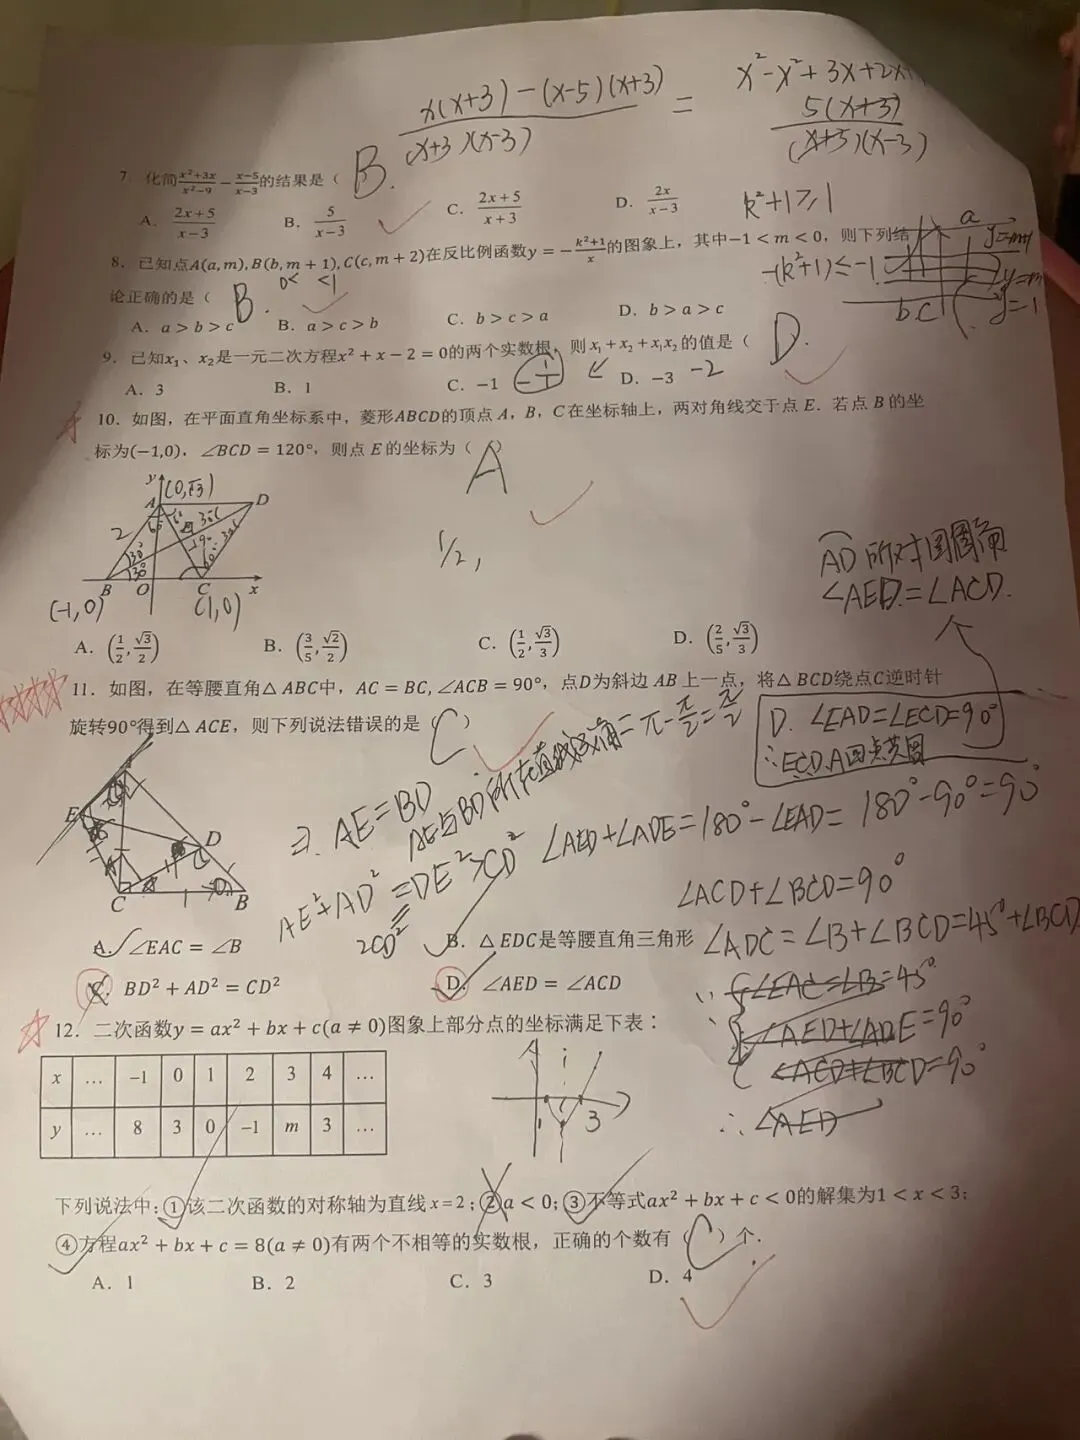 x(x+3)-(x-5)(x+3) / (x+3)(x-3) = x²-x²+3x+2x+
5(x+3) / (x+3)(x-3)
7. 化简 (x²+3x)/(x²-9) - (x-5)/(x-3) 的结果是( B.
A. (2x+5)/(x-3) B. 5/(x-3) C. (2x+5)/(x+3) D. 2x/(x-3)
k²+1≥1
8. 已知点A(a,m),B(b,m+1),C(c,m+2)在反比例函数y=-(k²+1)/x的图象上，其中-1<m<0，则下列结
0< <1
-(k²+1)≤-1
a
y=m+1
y=m
y=1
b c
论正确的是( B.
A. a>b>c B. a>c>b C. b>c>a D. b>a>c
9. 已知x₁、x₂是一元二次方程x²+x-2=0的两个实数根，则x₁+x₂+x₁x₂的值是( D.
A. 3 B. 1 C. -1 D. -3
-1/1 -2
10. 如图，在平面直角坐标系中，菱形ABCD的顶点A，B，C在坐标轴上，两对角线交于点E．若点B的坐
标为(-1,0)，∠BCD=120°，则点E的坐标为( A )
y
A (0,√3) D
2
30°
30°
B O C x
(-1,0) (1,0)
1/2,
A. (1/2,√3/2) B. (3/5,√2/2) C. (1/2,√3/3) D. (2/5,√3/3)
AD所对圆周角
∠AED=∠ACD.
11. 如图，在等腰直角△ABC中，AC=BC,∠ACB=90°，点D为斜边AB上一点，将△BCD绕点C逆时针
旋转90°得到△ACE，则下列说法错误的是( C )
D. ∠EAD=∠ECD=90°
∴ECDA四点共圆
E D
C 1 B
⇒. AE=BD
=π-π/2=π/2
AE²+AD²=DE²>CD²
2CD²
∠AED+∠ADE=180°-∠EAD=180°-90°=90°
∠ACD+∠BCD=90°
∠ADC=∠B+∠BCD=45°+∠BCD
A. ∠EAC=∠B B. △EDC是等腰直角三角形
C. BD²+AD²=CD² D. ∠AED=∠ACD
∵ ∠EAC=∠B=45°
∠AED+∠ADE=90°
∠ACD+∠BCD=90°
∴∠AED
12. 二次函数y=ax²+bx+c(a≠0)图象上部分点的坐标满足下表：
x … -1 0 1 2 3 4 …
y … 8 3 0 -1 m 3 …
1 3
下列说法中：①该二次函数的对称轴为直线x=2；②a<0；③不等式ax²+bx+c<0的解集为1<x<3；
④方程ax²+bx+c=8(a≠0)有两个不相等的实数根，正确的个数有( C )个．
A. 1 B. 2 C. 3 D. 4